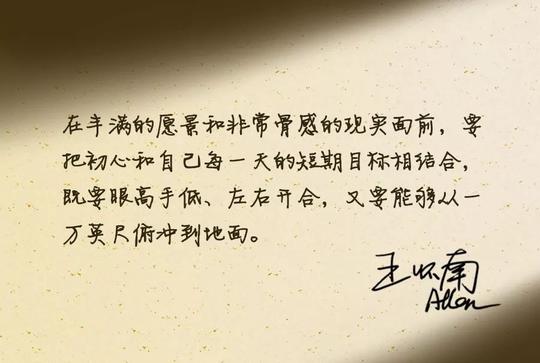 在丰满的愿景和非常骨感的现实面前，要
把初心和自己每一天的短期目标相结合，
既要眼高手低、左右开合，又要能够从一
万英尺俯冲到地面。
王怀南
Allen